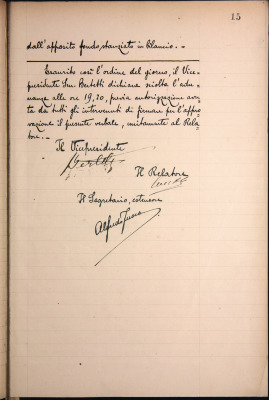 15
dall'apposito fondo stanziato in bilancio. -
Esaurito così l'ordine del giorno, il Vice-
presidente Sen. Bertetti dichiara sciolta l'adu-
nanza alle ore 19,20, previa autorizzazione avu-
ta da tutti gli intervenuti di firmare per l'appro-
vazione il presente verbale, unitamente al Rela-
tore. -
Il Vicepresidente
Il Relatore
Il Segretario, estensore
Alfredo